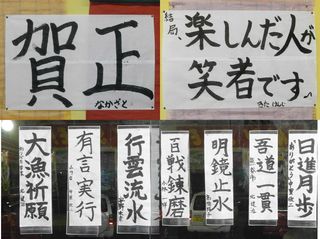 賀正
なかざと
結局、
楽しんだ人が
笑者です
きたけんじ
日進月歩
吾道一貫
明鏡止水
百戦錬磨
行雲流水
有言実行
大漁祈願